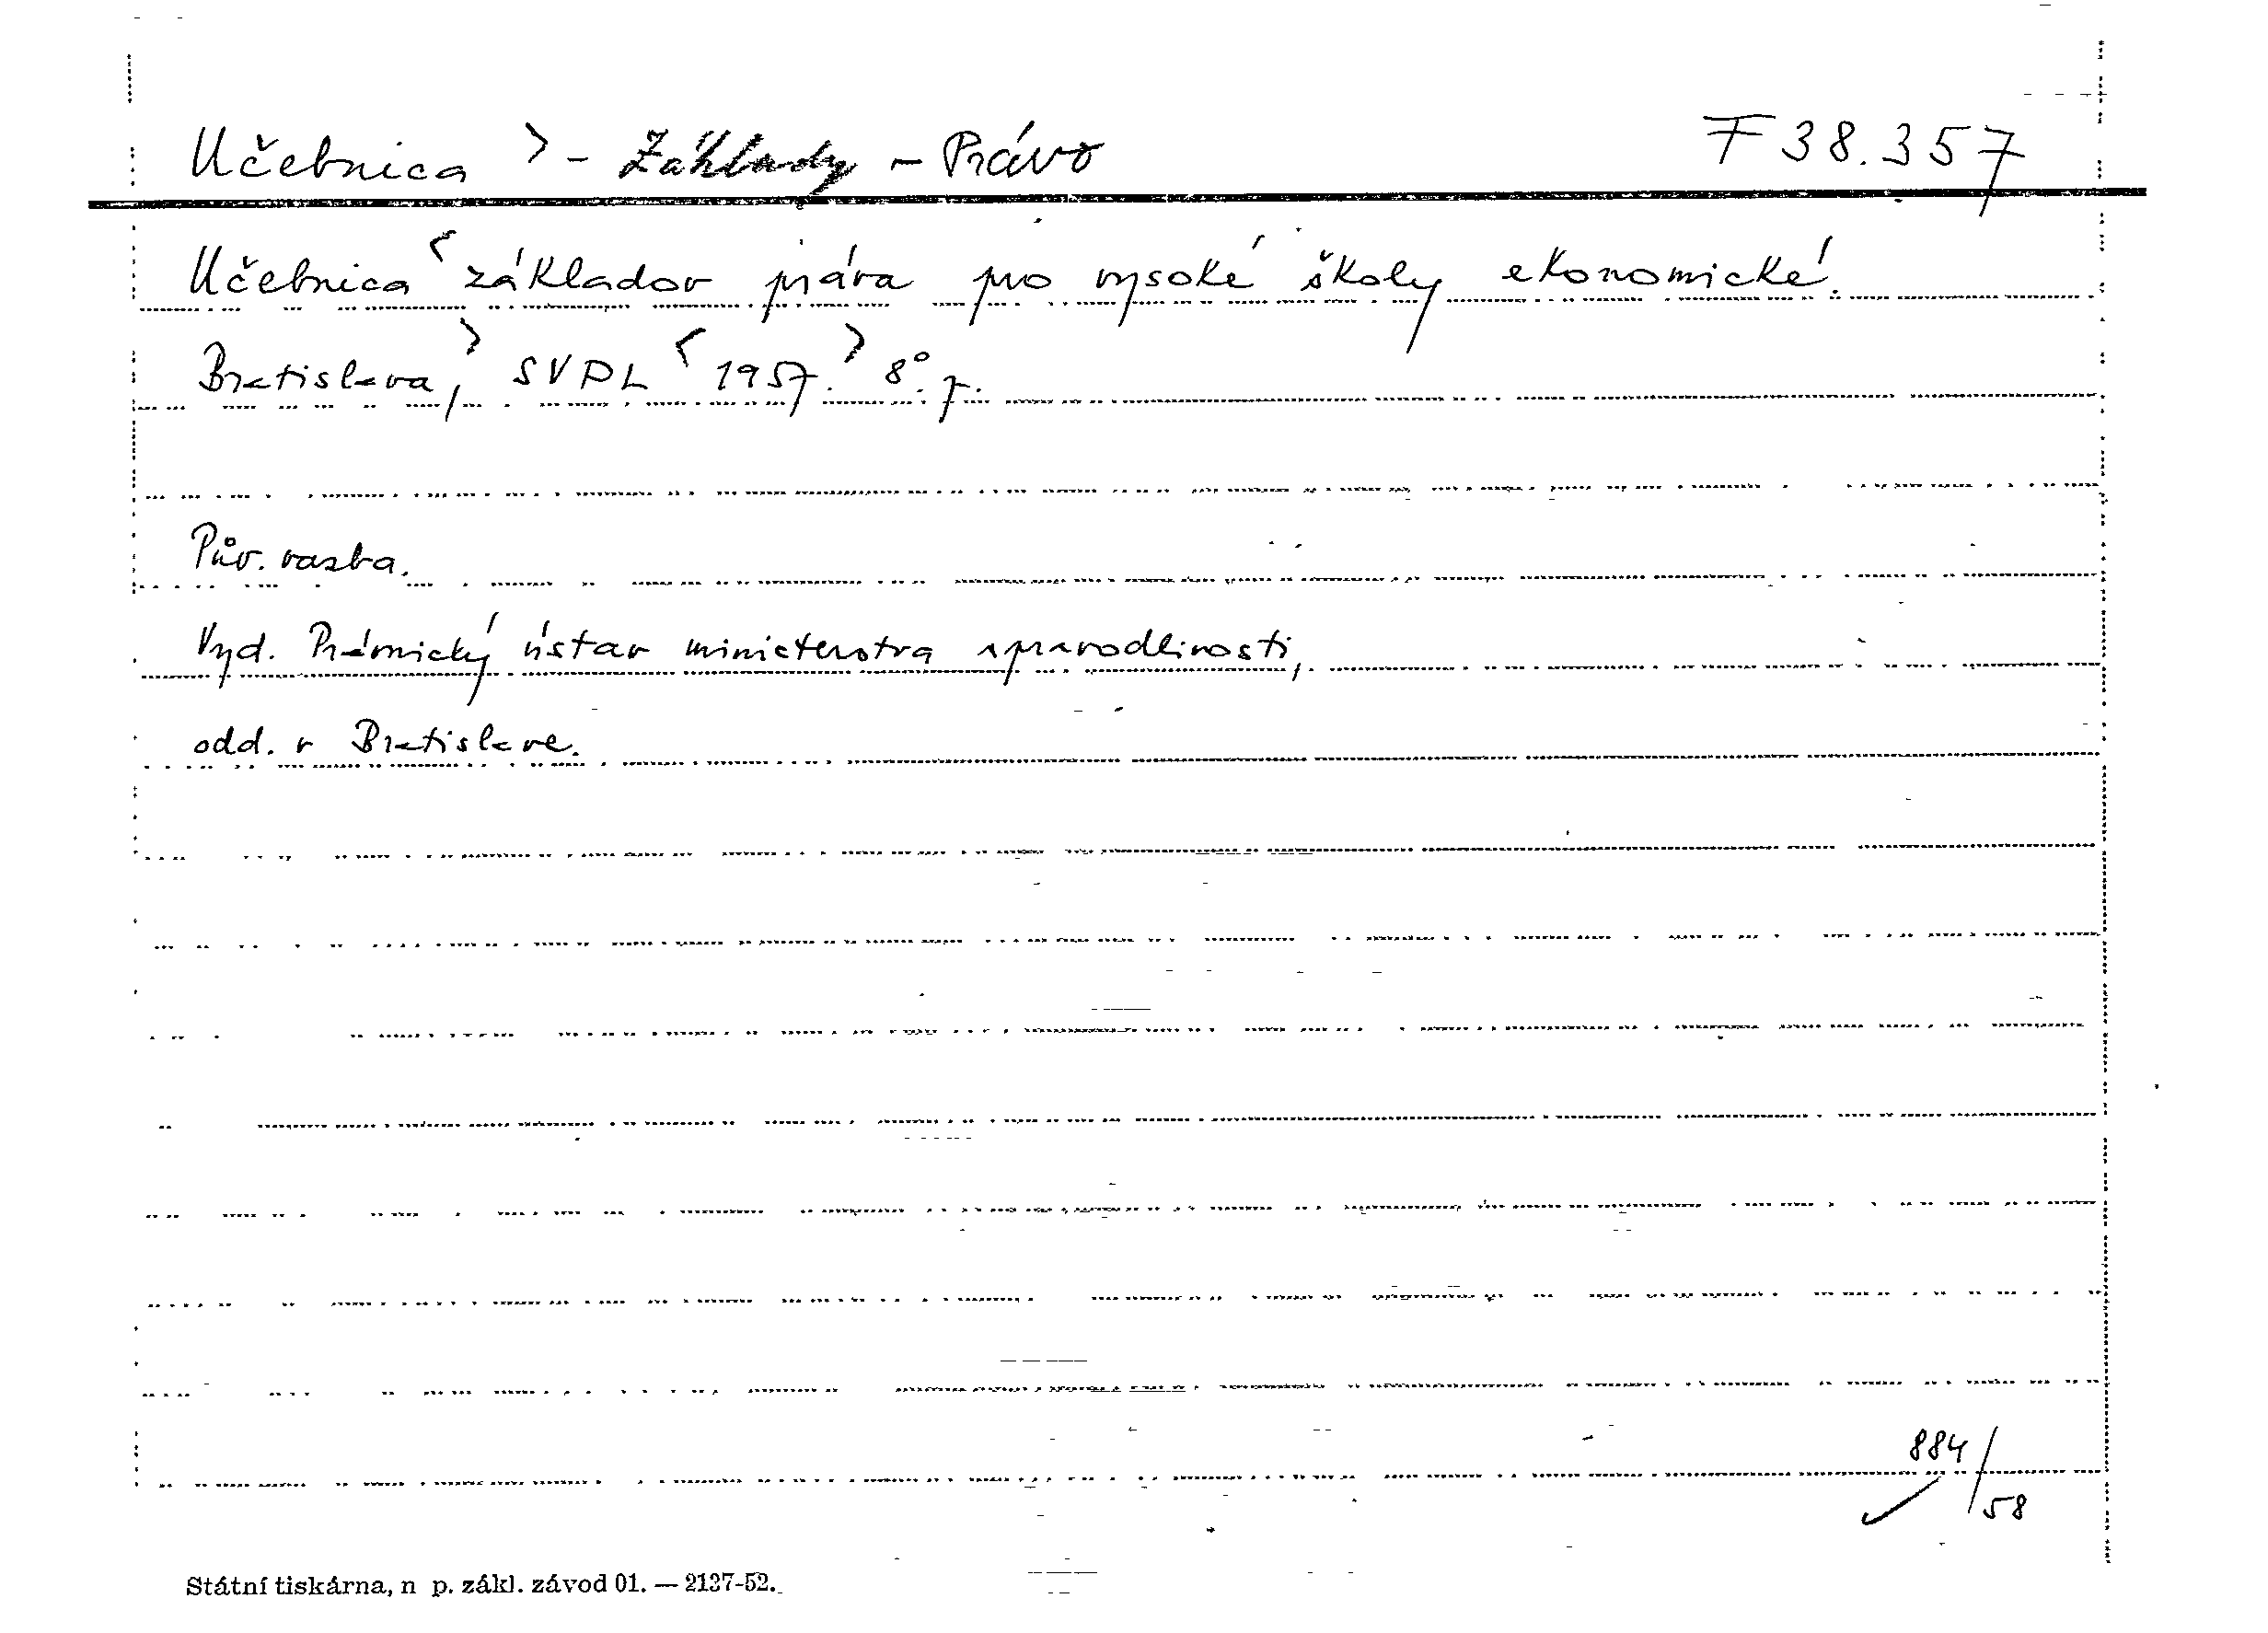 Učebnica > - Základy - Právo F 38.357
Učebnica < základov práva pro vysoké školy ekonomické.
Bratislava, > SVPL < 1957. > 8°. 7.
Pův. vazba.
Vyd. Právnický ústav ministerstva spravodlivosti,
odd. v Bratislave.
884/58
Státní tiskárna, n p. zákl. závod 01. — 2137-52.